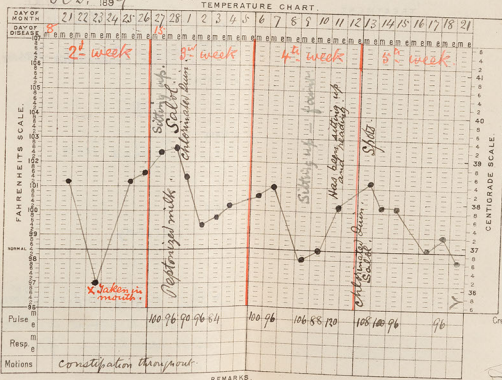 TEMPERATURE CHART.
DAY OF MONTH 21 22 23 24 25 26 27 28 1 2 3 4 5 6 7 8 9 10 11 12 13 14 15 16 17 18 21
DAY OF DISEASE 8 15
m e m e m e m e m e m e m e m e m e m e m e m e m e m e m e m e m e m e m e m e m e m e m e m e m e m e m e
2d week 3rd week 4th week 5th week
FAHRENHEITS SCALE.
107
106
105
104
103
102
101
100
99
NORMAL
98
97
96
CENTIGRADE SCALE.
39
38
36
Sitting up.
Salol.
Chlorinated Quin.
Peptonized milk.
Sitting up
Has been sitting up
and reading
Spots
Chlorinated Quin.
Salol.
x Taken in
mouth.
Pulse m e 100 96 90 96 84 100 96 106 88 120 108 100 96 96
Resp. m e
Motions Constipation throughout
REMARKS.